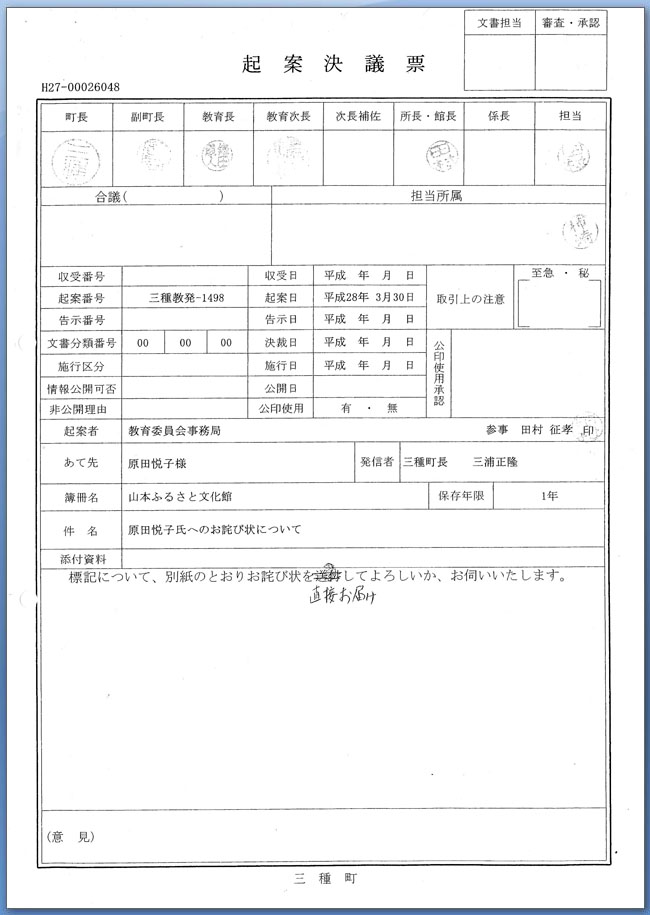 文書担当 審査・承認
起案決議票
H27-00026048
町長 副町長 教育長 教育次長 次長補佐 所長・館長 係長 担当
合議( ) 担当所属
収受番号 収受日 平成 年 月 日 取引上の注意 至急・秘
起案番号 三種教発-1498 起案日 平成28年 3月30日
告示番号 告示日 平成 年 月 日
文書分類番号 00 00 00 決裁日 平成 年 月 日 公印使用承認
施行区分 施行日 平成 年 月 日
情報公開可否 公開日
非公開理由 公印使用 有 ・ 無
起案者 教育委員会事務局 参事 田村 征孝 印
あて先 原田悦子様 発信者 三種町長 三浦正隆
簿冊名 山本ふるさと文化館 保存年限 1年
件名 原田悦子氏へのお詫び状について
添付資料
標記について、別紙のとおりお詫び状を送付してよろしいか、お伺いいたします。
直接お届け
(意 見)
三種町